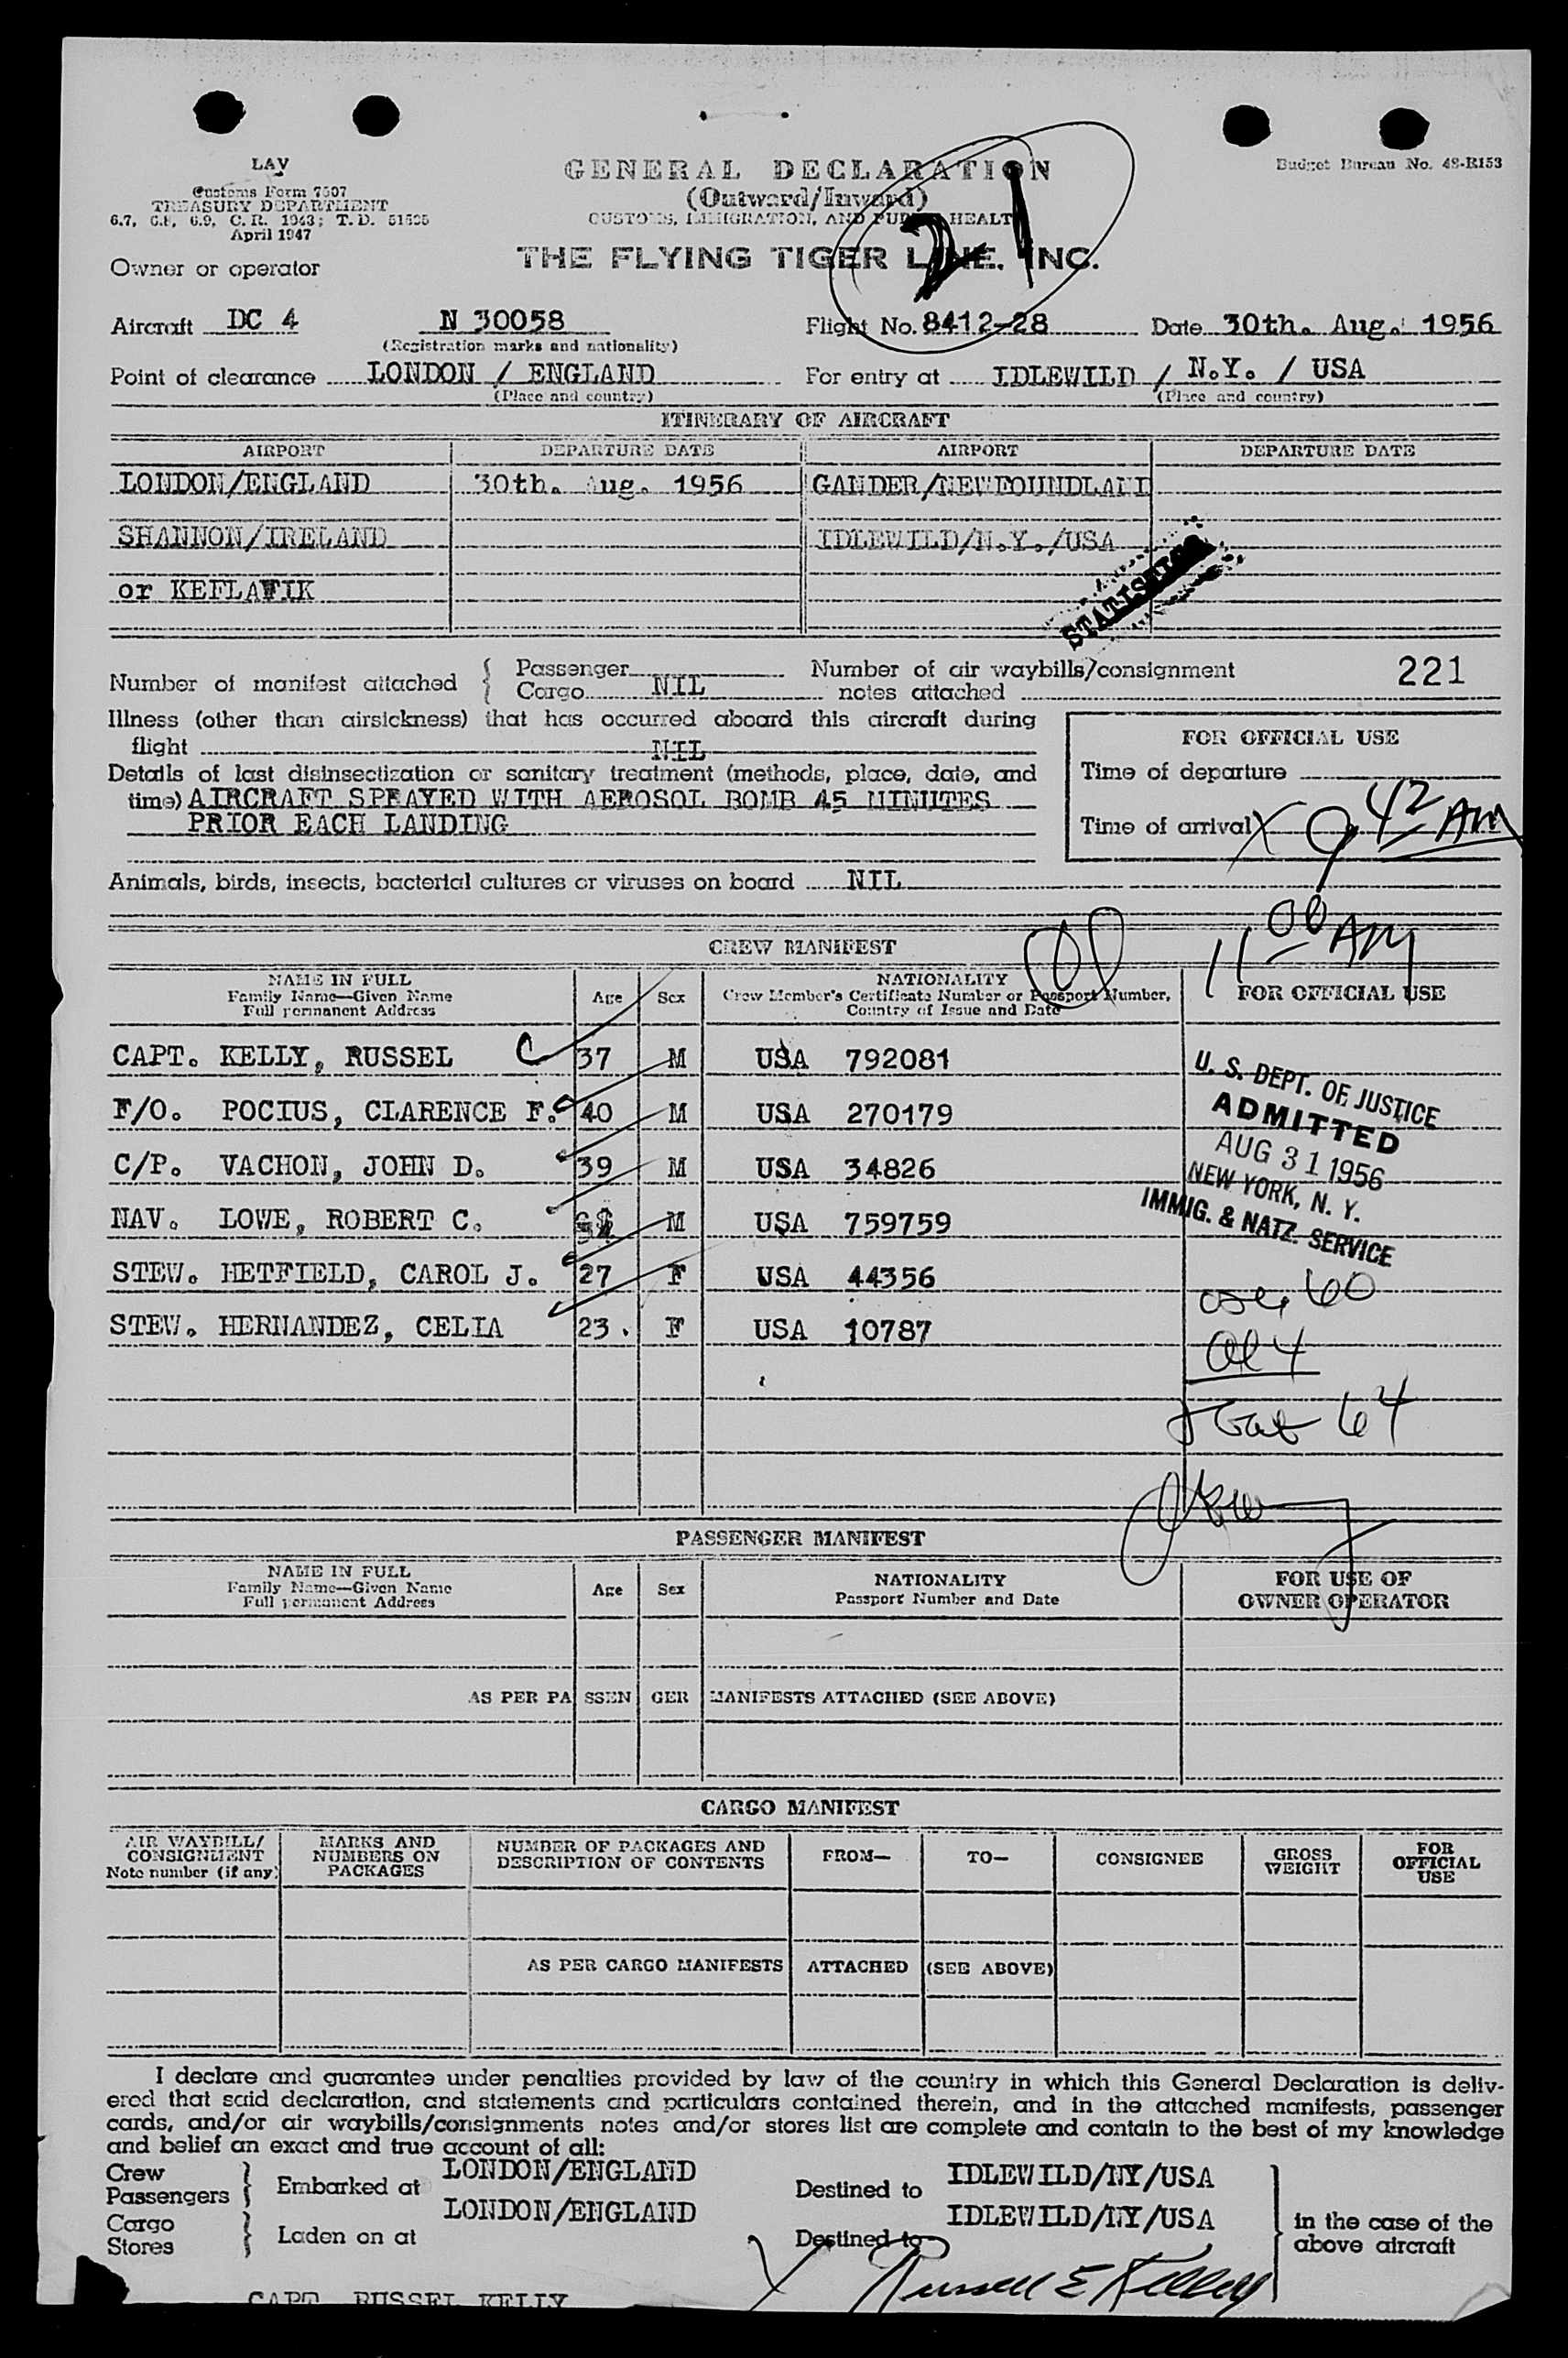 LAV
Customs Form 7507
TREASURY DEPARTMENT
6.7, 6.8, 6.9, C. R. 1943; T. D. 51595
April 1947
GENERAL DECLARATION
(Outward/Inward)
CUSTOMS, IMMIGRATION, AND PUBLIC HEALTH
Budget Bureau No. 48-R153
21
Owner or operator
THE FLYING TIGER LINE. INC.
Aircraft DC 4 N 30058 Flight No. 8412-28 Date 30th. Aug. 1956
(Registration marks and nationality)
Point of clearance LONDON / ENGLAND For entry at IDLEWILD / N.Y. / USA
(Place and country) (Place and country)
ITINERARY OF AIRCRAFT
AIRPORT DEPARTURE DATE AIRPORT DEPARTURE DATE
LONDON/ENGLAND 30th. Aug. 1956 GANDER/NEWFOUNDLAND
SHANNON/IRELAND IDLEWILD/N.Y./USA
or KEFLAVIK
STATISTICS
Number of manifest attached { Passenger Number of air waybills/consignment 221
Cargo NIL notes attached
Illness (other than airsickness) that has occurred aboard this aircraft during
flight NIL
Details of last disinsectization or sanitary treatment (methods, place, date, and
time) AIRCRAFT SPRAYED WITH AEROSOL BOMB 45 MINUTES
PRIOR EACH LANDING
FOR OFFICIAL USE
Time of departure
Time of arrival X 9 42 AM
Animals, birds, insects, bacterial cultures or viruses on board NIL
11 00 AM
CREW MANIFEST
NAME IN FULL
Family Name—Given Name
Full permanent Address
Age Sex
NATIONALITY
Crew Member's Certificate Number or Passport Number,
Country of Issue and Date
FOR OFFICIAL USE
CAPT. KELLY, RUSSEL C 37 M USA 792081
F/O. POCIUS, CLARENCE F. 40 M USA 270179
C/P. VACHON, JOHN D. 39 M USA 34826
NAV. LOWE, ROBERT C. M USA 759759
STEW. HETFIELD, CAROL J. 27 F USA 44356
STEW. HERNANDEZ, CELIA 23. F USA 10787
U. S. DEPT. OF JUSTICE
ADMITTED
AUG 31 1956
NEW YORK, N. Y.
IMMIG. & NATZ. SERVICE
60
al 4
64
PASSENGER MANIFEST
NAME IN FULL
Family Name—Given Name
Full permanent Address
Age Sex
NATIONALITY
Passport Number and Date
FOR USE OF
OWNER OPERATOR
AS PER PASSENGER MANIFESTS ATTACHED (SEE ABOVE)
CARGO MANIFEST
AIR WAYBILL/
CONSIGNMENT
Note number (if any)
MARKS AND
NUMBERS ON
PACKAGES
NUMBER OF PACKAGES AND
DESCRIPTION OF CONTENTS
FROM— TO— CONSIGNEE
GROSS
WEIGHT
FOR
OFFICIAL
USE
AS PER CARGO MANIFESTS ATTACHED (SEE ABOVE)
I declare and guarantee under penalties provided by law of the country in which this General Declaration is deliv-
ered that said declaration, and statements and particulars contained therein, and in the attached manifests, passenger
cards, and/or air waybills/consignments notes and/or stores list are complete and contain to the best of my knowledge
and belief an exact and true account of all:
Crew
Passengers } Embarked at LONDON/ENGLAND Destined to IDLEWILD/NY/USA
Cargo
Stores } Laden on at LONDON/ENGLAND Destined to IDLEWILD/NY/USA
in the case of the
above aircraft
X Russell E Kelley
CAPT. RUSSEL KELLY